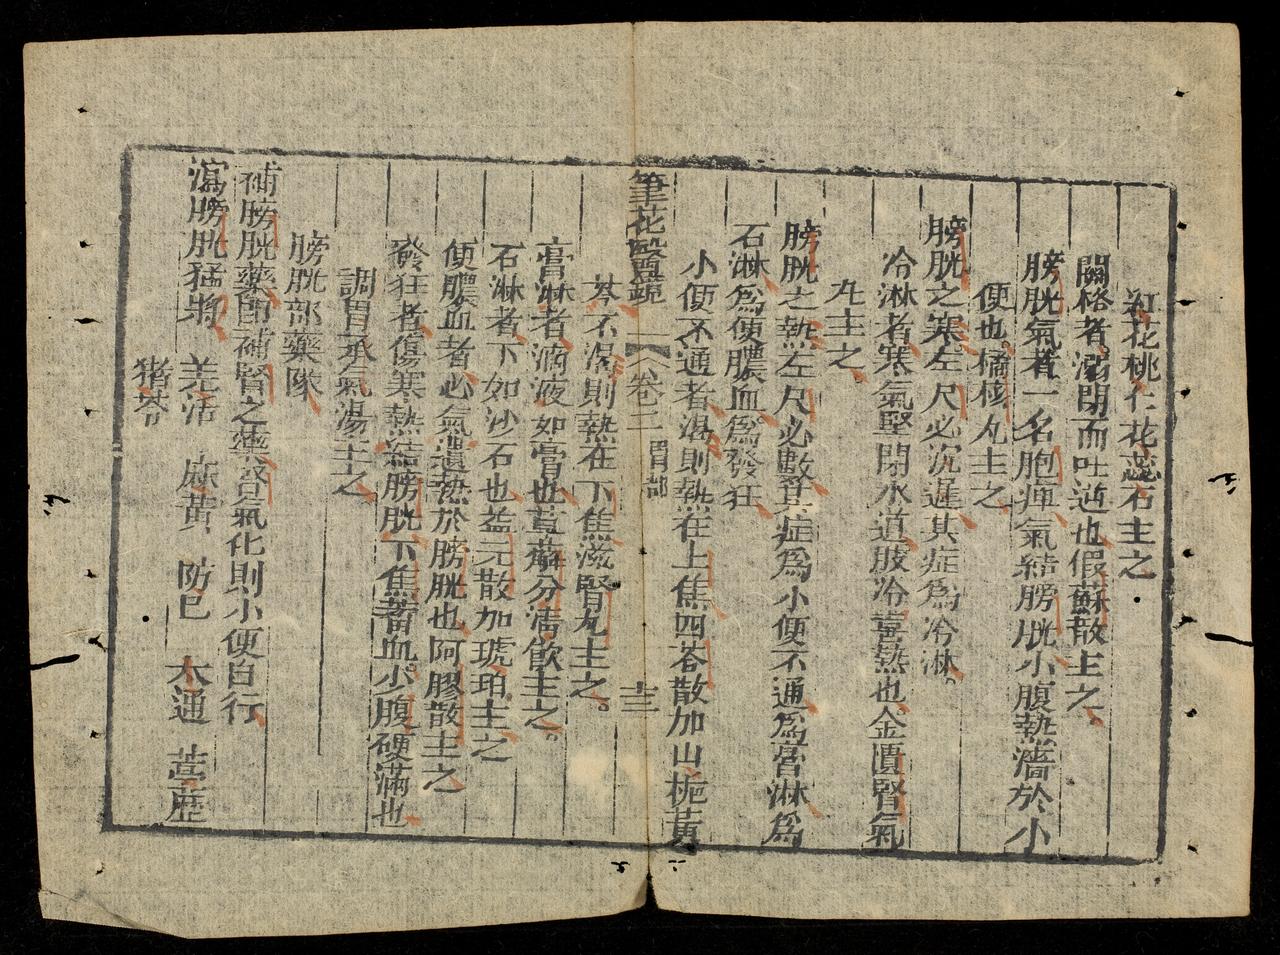 紅花桃仁花蕊石主之
關格者溺閉而吐逆也假蘇散主之
膀胱氣者一名胞痺氣結膀胱小腹熱濇於小
便也橘核丸主之
膀胱之寒左尺必沉遲其症爲冷淋
冷淋者寒氣堅閉水道肢冷喜熱也金匱腎氣
丸主之
膀胱之熱左尺必數其症爲小便不通爲膏淋爲
石淋爲便膿血爲發狂
小便不通者渴則熱在上焦四苓散加山梔黃
筆花醫鏡 卷二 胃部 十三
芩不渴則熱在下焦滋腎丸主之
膏淋者滴液如膏也萆薢分清飲主之
石淋者下如沙石也益元散加琥珀主之
便膿血者心氣遺熱於膀胱也阿膠散主之
發狂者傷寒熱結膀胱下焦蓄血少腹硬滿也
調胃承氣湯主之
膀胱部藥隊
補膀胱藥即補腎之藥腎氣化則小便自行
瀉膀胱猛將 羌活 麻黃 防已 木通 葶藶
猪苓